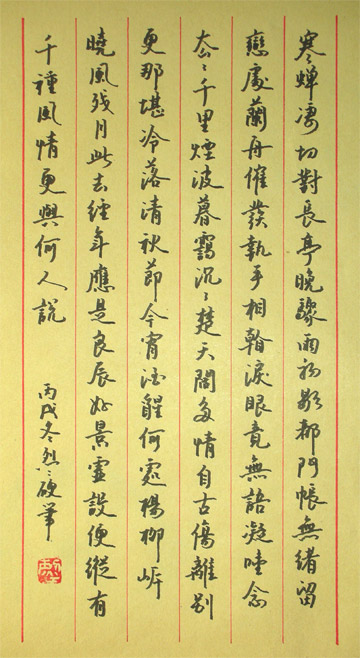 寒蟬凄切對長亭晚驟雨初歇都門帳無緒留
戀處蘭舟催發執手相看淚眼竟無語凝噎念
去〻千里煙波暮靄沉〻楚天闊多情自古傷離别
更那堪冷落清秋節今宵酒醒何處楊柳岸
曉風残月此去經年應是良辰好景虛設便縱有
千種風情更與何人説
丙戌冬烈〻硬筆